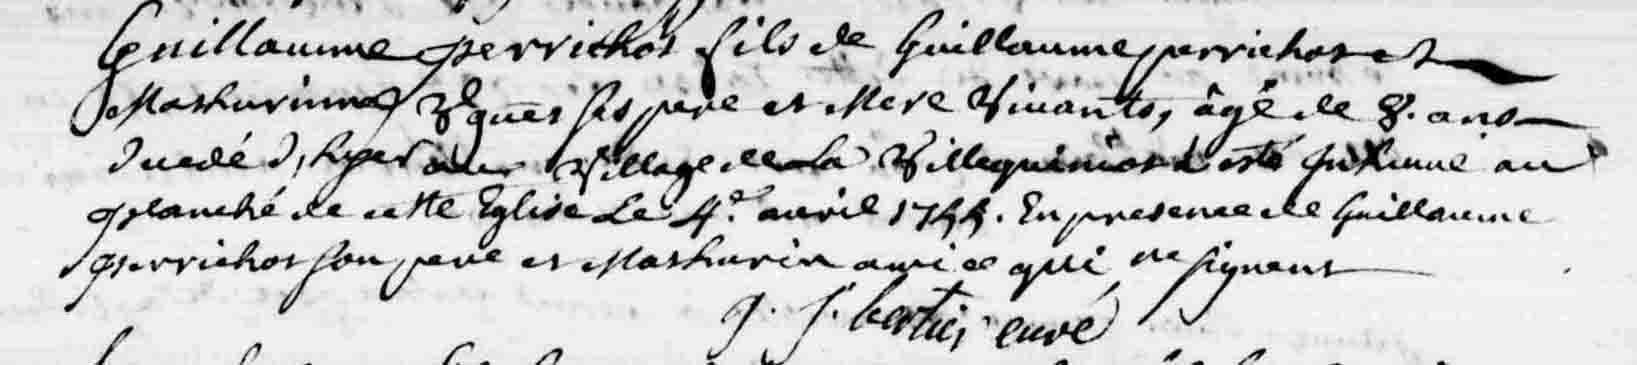 Guillaume perrichot fils de Guillaume perrichot et
Mathurinne ses pere et Mere Vivants, âgé de 8. ans
decedé d'hyer au Village de La Villequiniot a esté Inhumé au
planché de cette Eglise Le 4e avril 1744. En presence de Guillaume
perrichot son pere et Mathurin amice qui ne signent
J. J. bertier curé